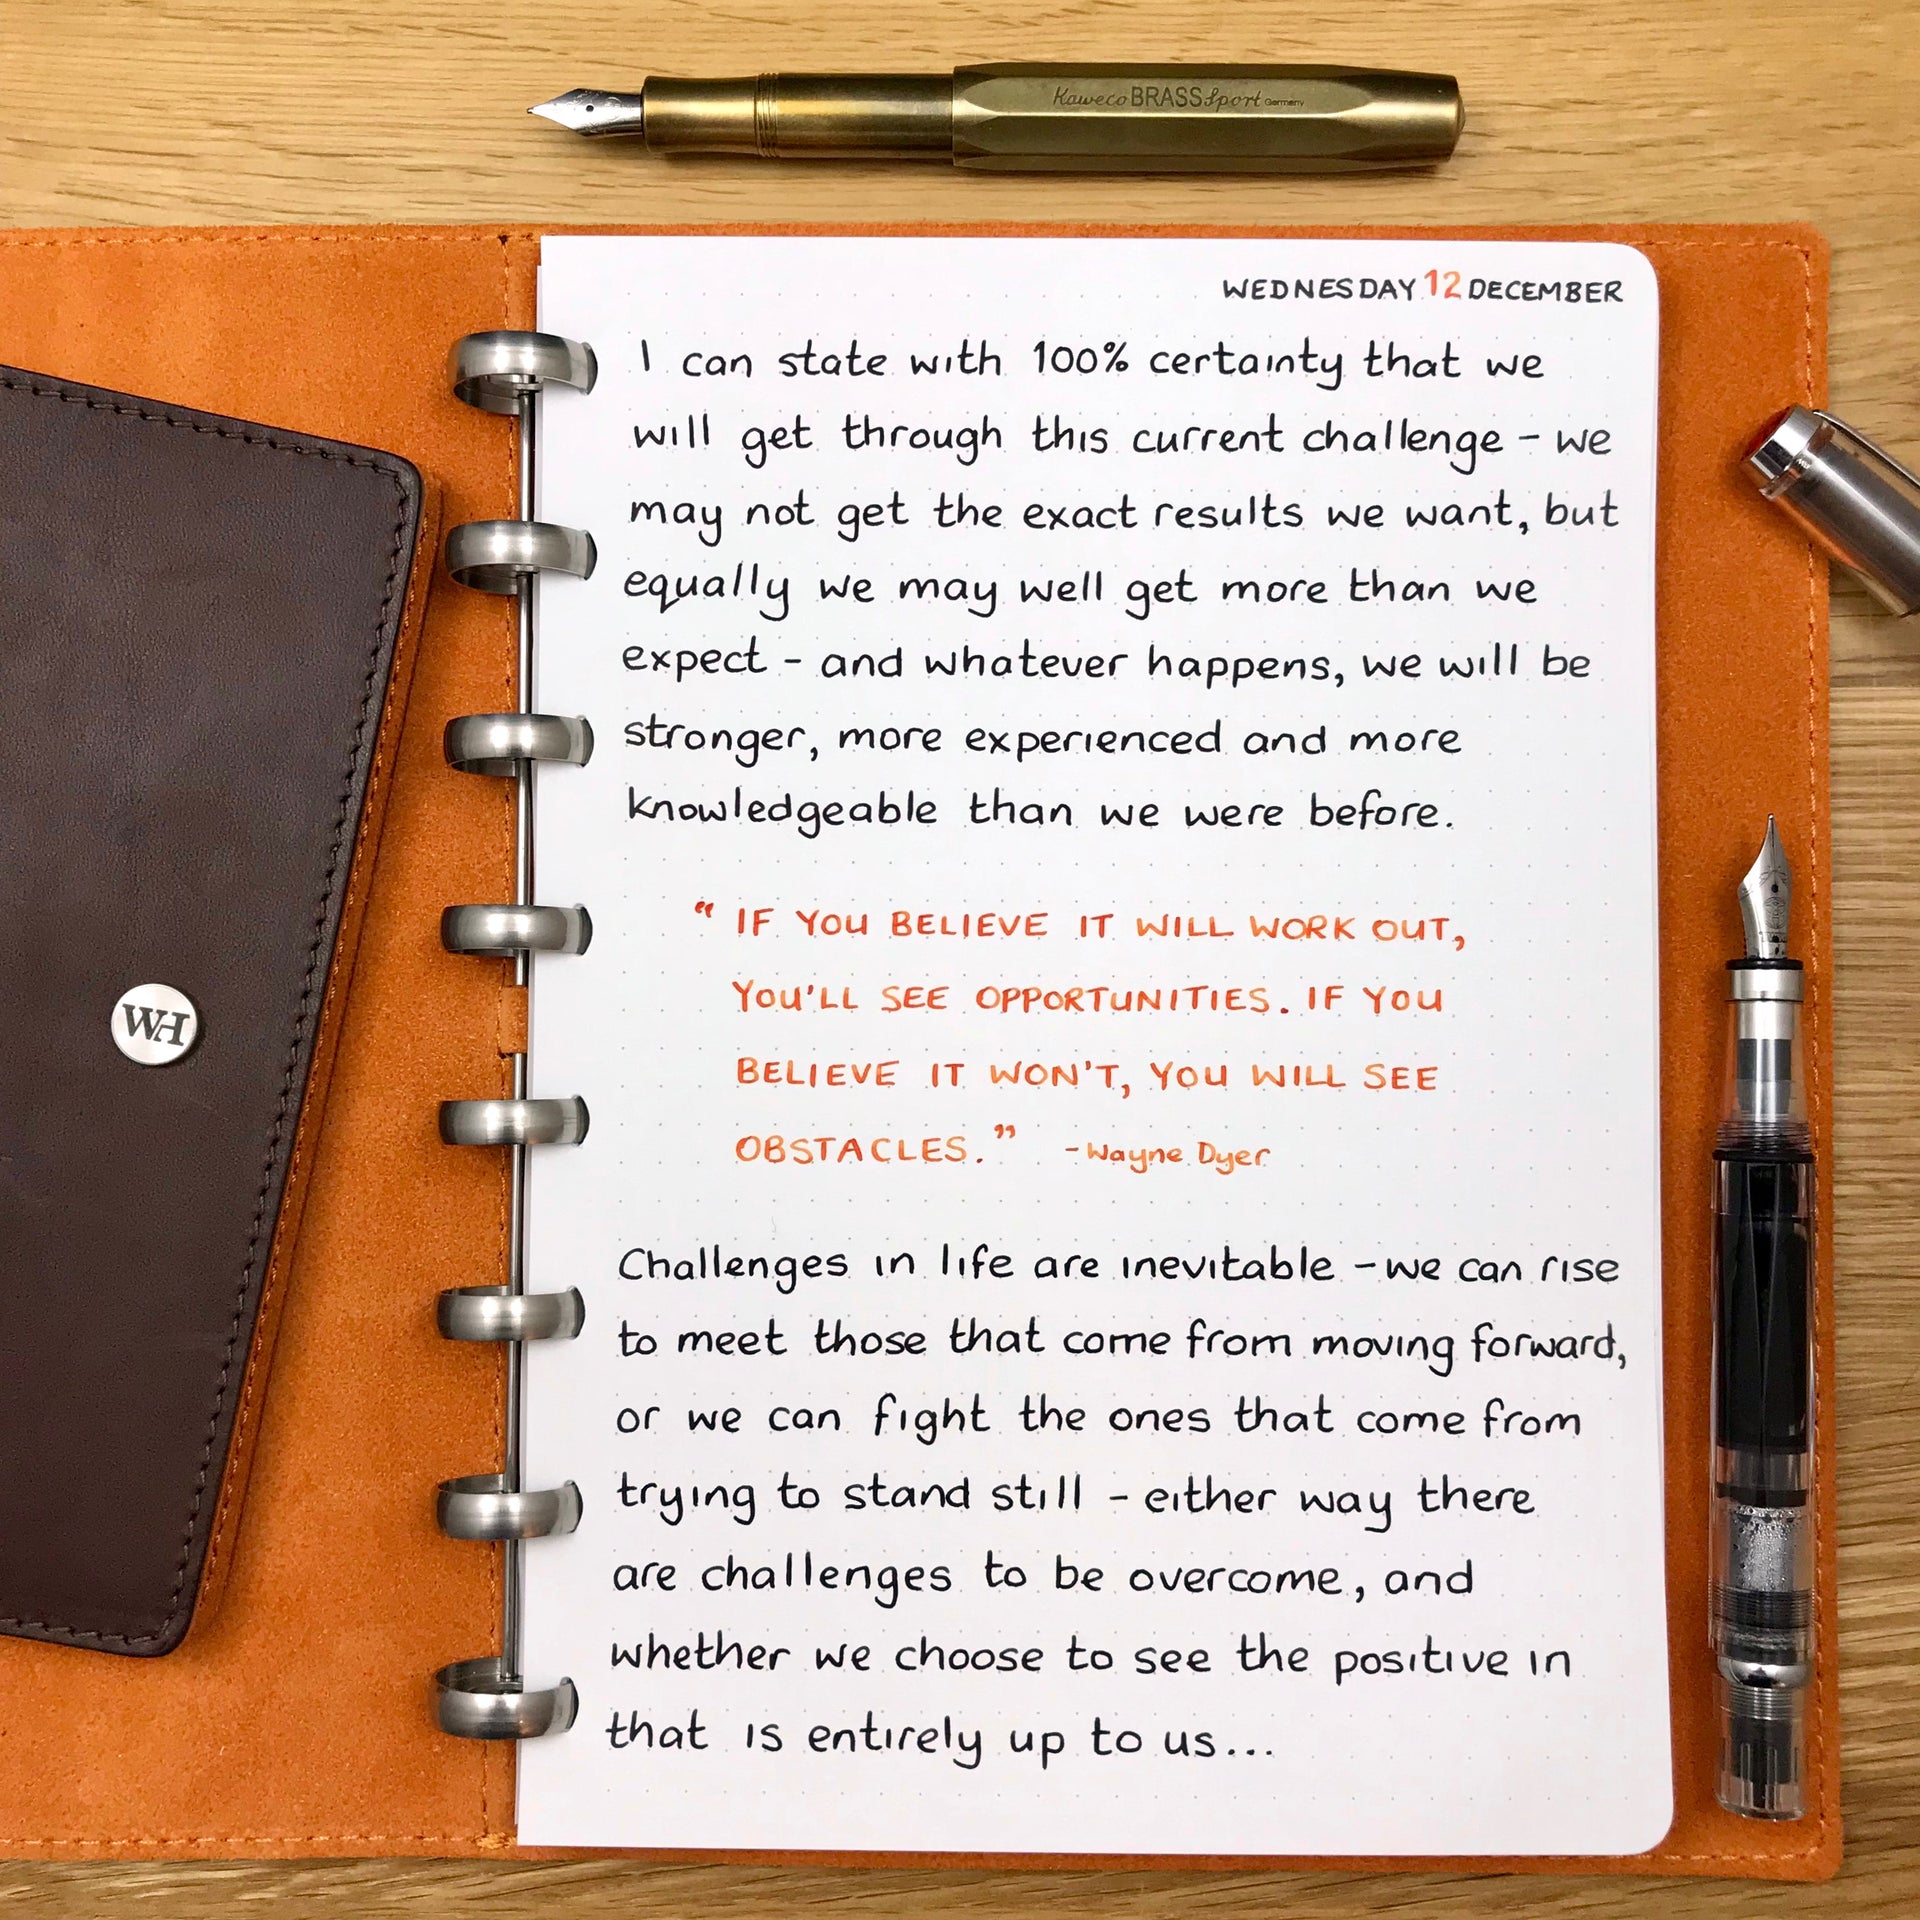 Kaweco BRASS Sport Germany
WEDNESDAY 12 DECEMBER
I can state with 100% certainty that we
will get through this current challenge - we
may not get the exact results we want, but
equally we may well get more than we
expect - and whatever happens, we will be
stronger, more experienced and more
knowledgeable than we were before.
“ IF YOU BELIEVE IT WILL WORK OUT,
YOU'LL SEE OPPORTUNITIES. IF YOU
BELIEVE IT WON'T, YOU WILL SEE
OBSTACLES.” - Wayne Dyer
WH
Challenges in life are inevitable - we can rise
to meet those that come from moving forward,
or we can fight the ones that come from
trying to stand still - either way there
are challenges to be overcome, and
whether we choose to see the positive in
that is entirely up to us...